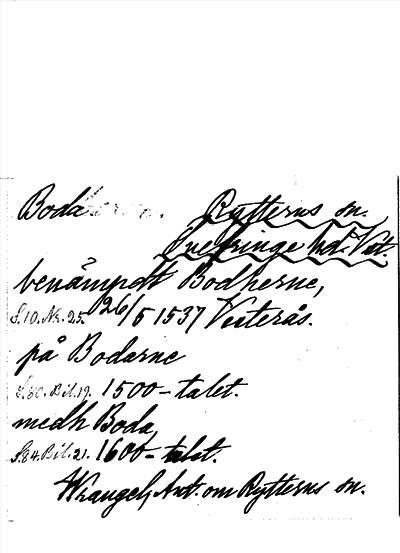 Boda Rytterns sn.
Snefringe hd. Vst.
benämpdt Bodherne,
S.10. Nr. 25. 26/5 1537 Vesterås.
på Bodarne
S.80. Bil. 19. 1500-talet.
medh Boda,
S.84. Bil. 21. 1600-talet.
Wrangel, Ant. om Rytterns sn.